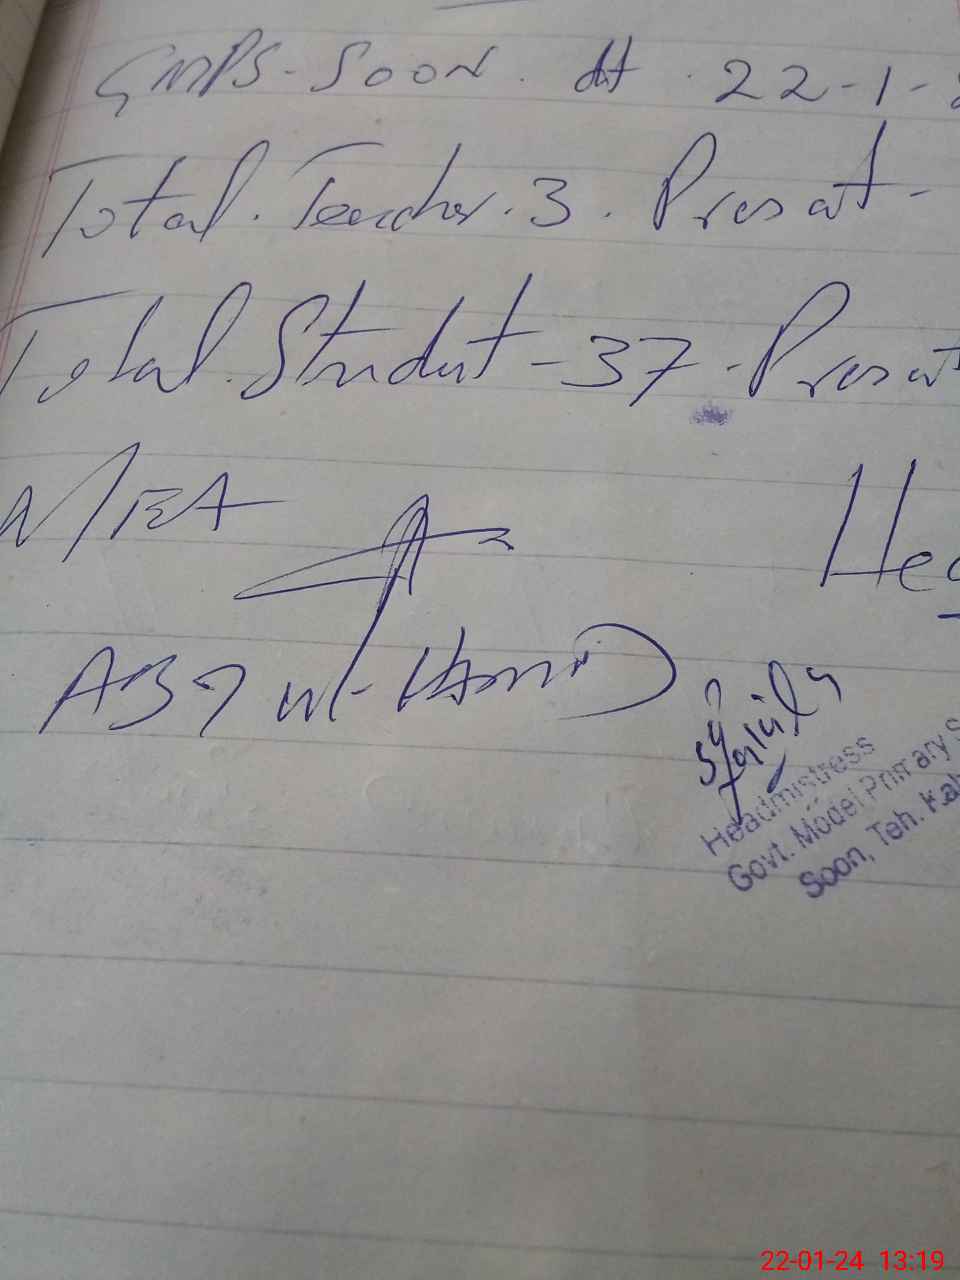 GMPS-Soon. dt. 22-1-
Total. Teacher. 3. Presat-
Total. Student-37-Presat
N/EA
Hea
ABDul-HamiD
Headmistress
Govt. Model Primary S
Soon, Teh. Kah
22-01-24 13:19